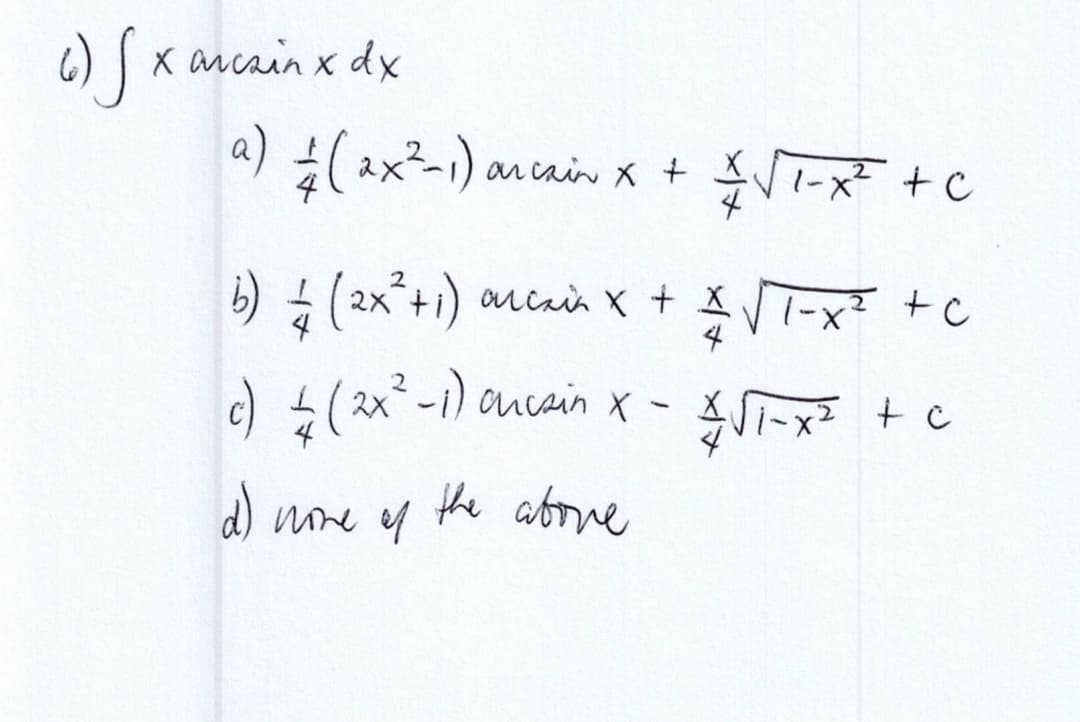 6) ∫ x arcsin x dx
a) 1/4 (2x²-1) arcsin x + x/4 √(1-x²) + C
b) 1/4 (2x²+1) arcsin x + x/4 √(1-x²) + C
c) 1/4 (2x²-1) arcsin x - x/4 √(1-x²) + C
d) none of the above